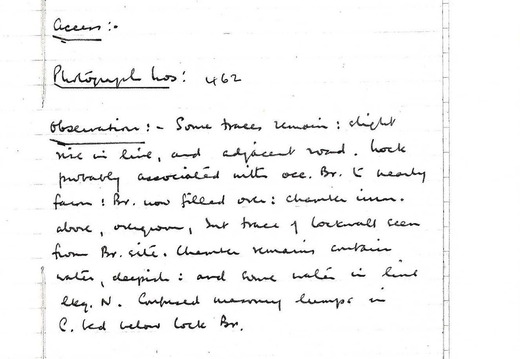 Access :-
Photograph Nos : 462
Observation :- Some traces remain : slight
rise in line, and adjacent road. Lock
probably associated with occ. Br. to nearby
farm : Br. now filled over : chamber imm.
above, overgrown, but trace of lockwall seen
from Br. site. Chamber remains contain
water, deepish : and some water in line
lkg. N. Confused masonry lumps in
C. bed below lock Br.